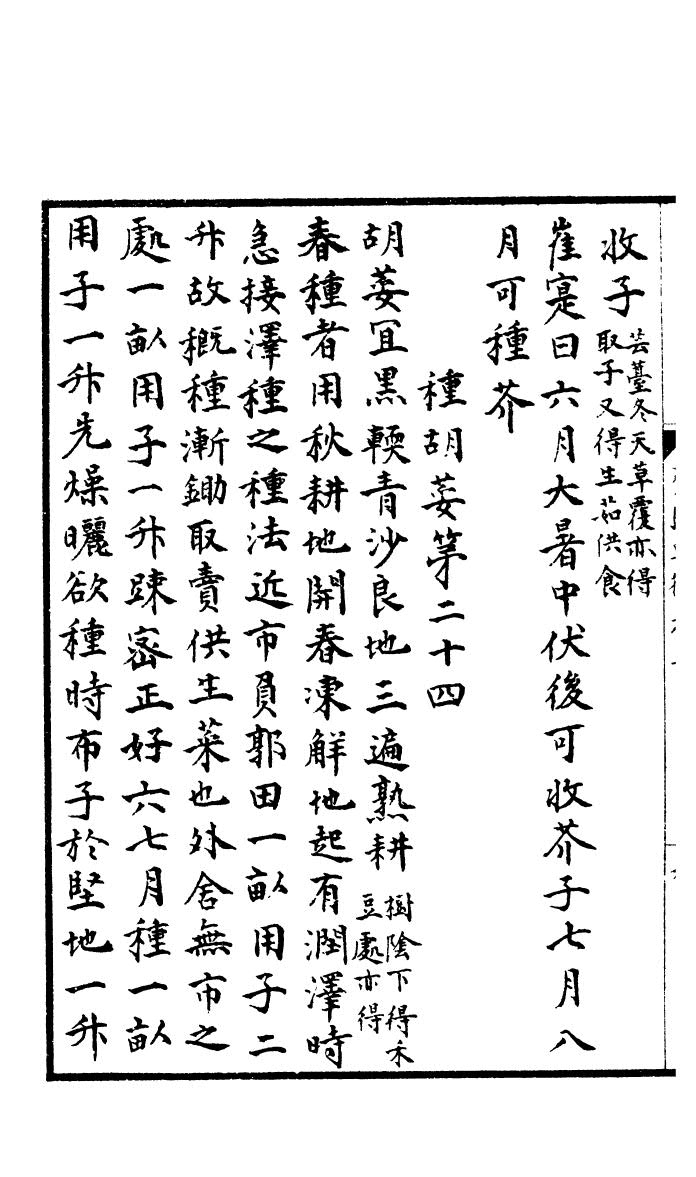 收子芸薹冬天草覆亦得取子又得生茹供食
崔寔曰六月大暑中伏後可收芥子七月八
月可種芥
種胡荽第二十四
胡荽宜黑輭青沙良地三遍熟耕樹陰下得禾豆處亦得
春種者用秋耕地開春凍解地起有潤澤時
急接澤種之種法近市負郭田一畝用子二
升故穊種漸鋤取賣供生菜也外舍無市之
處一畝用子一升踈密正好六七月種一畝
用子一升先燥曬欲種時布子於堅地一升